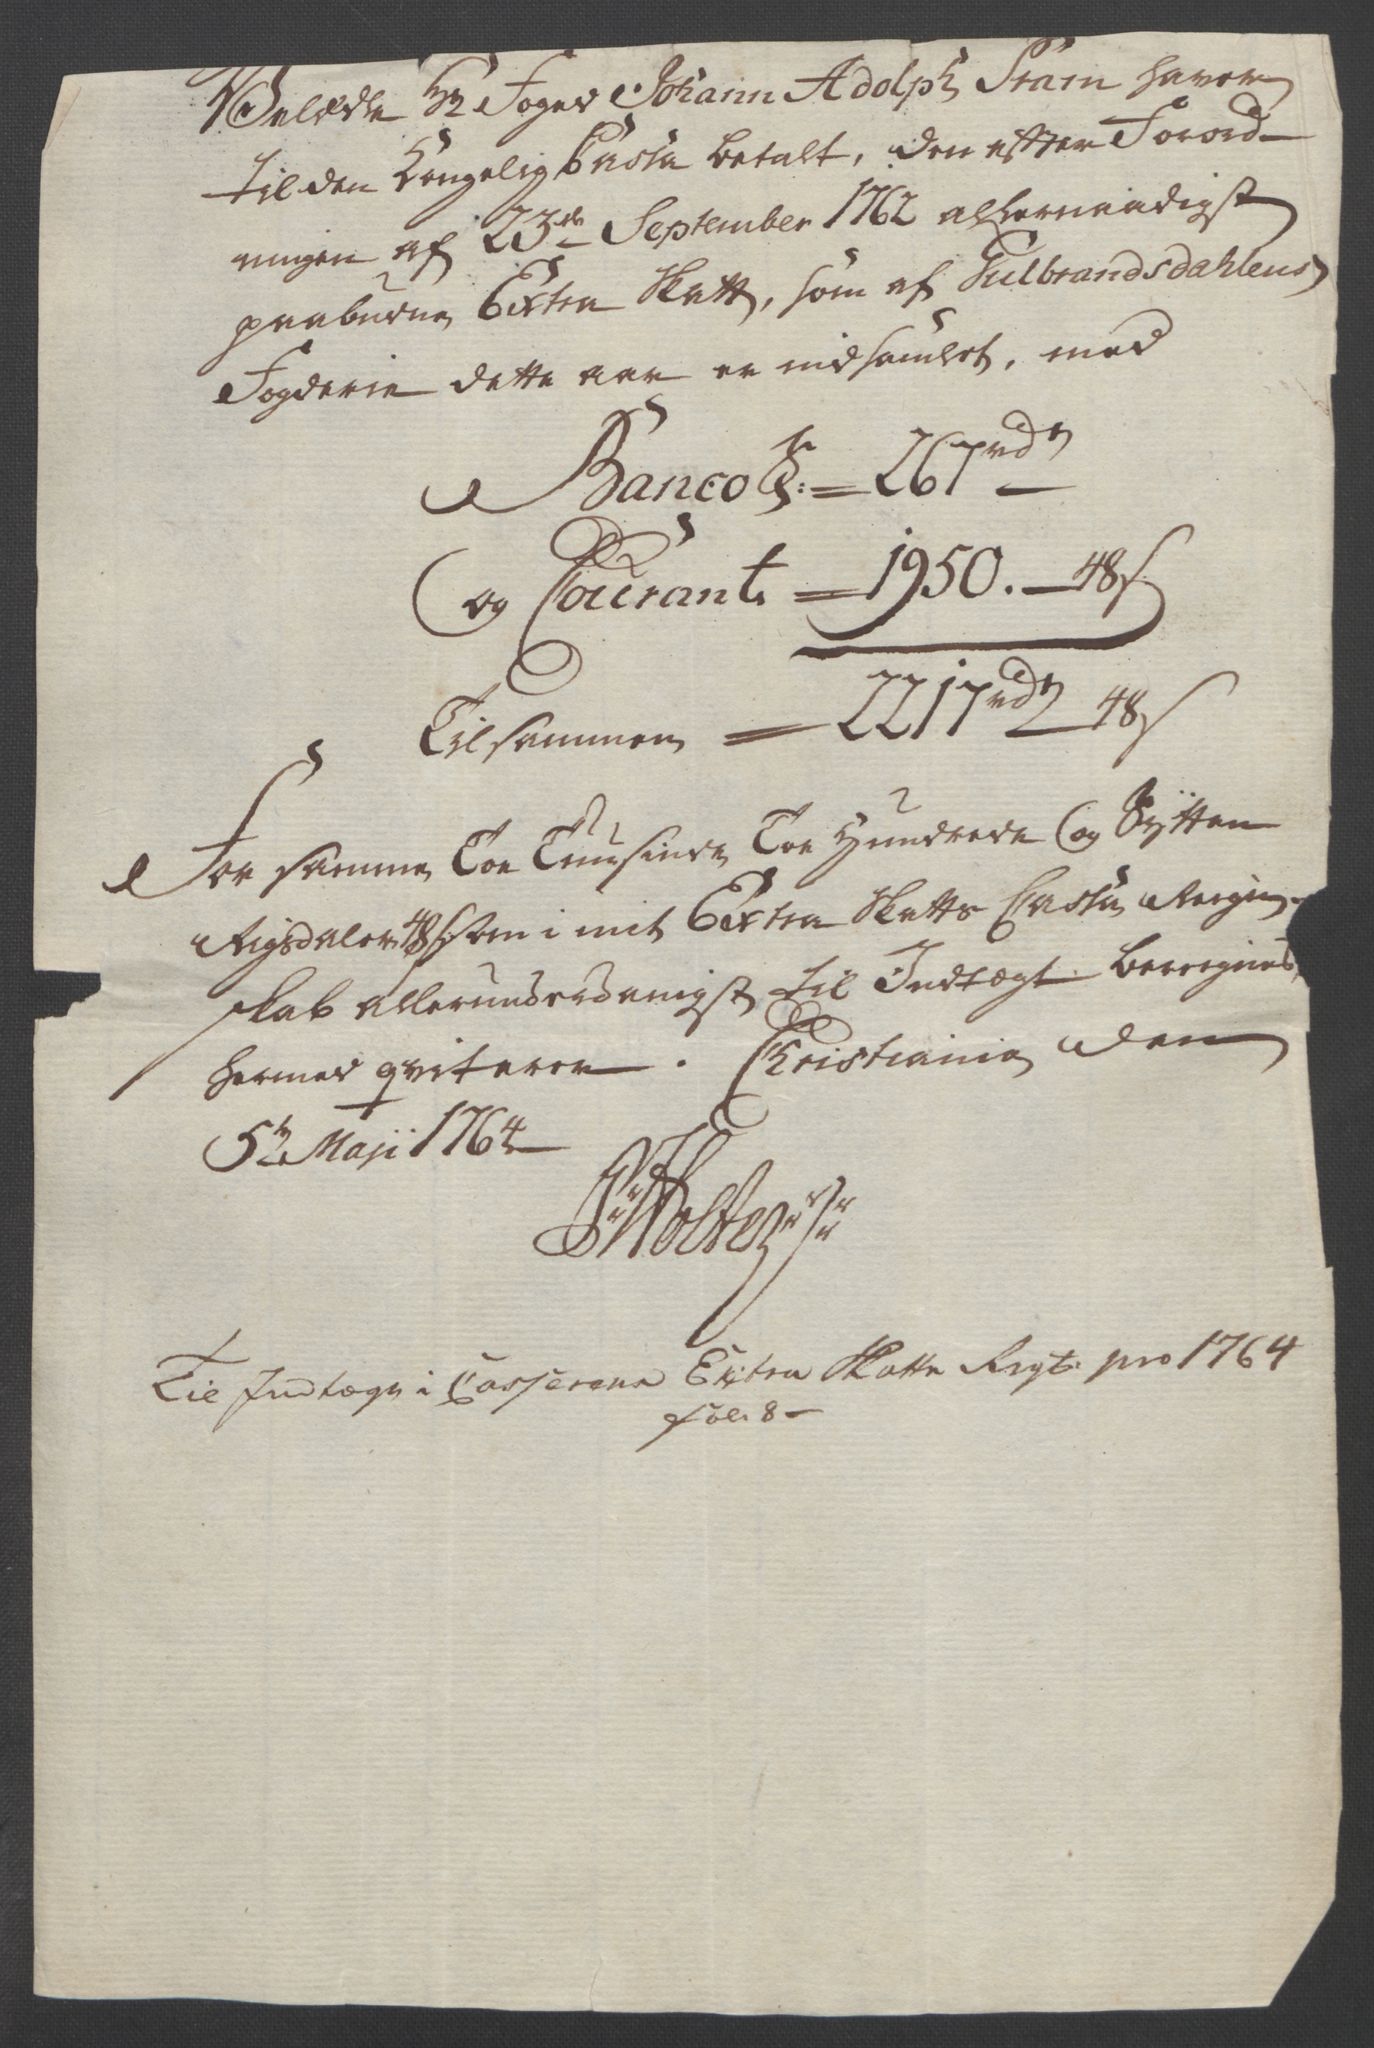 Velædle Hr Foged Johann Adolph Stram haver
til den Kongelig Cassa betalt, den efter Forord-
ningen af 23de September 1762 allernaadigst
paabudne Extra Skatt, som af Gulbrandsdahlens
Fogderie dette aar er indsamlet, med
Banco = 267 rdr
og Courant = 1950. — 48 s
Tilsammen = 2217 rdr 48 s
For samme Toe Tuusinde Toe Hundrede Og Sytten
Rigsdaler 48 s som i mit Extra Skatts Cassa Regn-
skab allerunderdanigst til Indtægt beregnes,
hermed qviterer. Christiania den
5te Maji 1764
Holter
Til Indtægt i Casserene Extra Skatte Regt. pro 1764
fol. 8 —